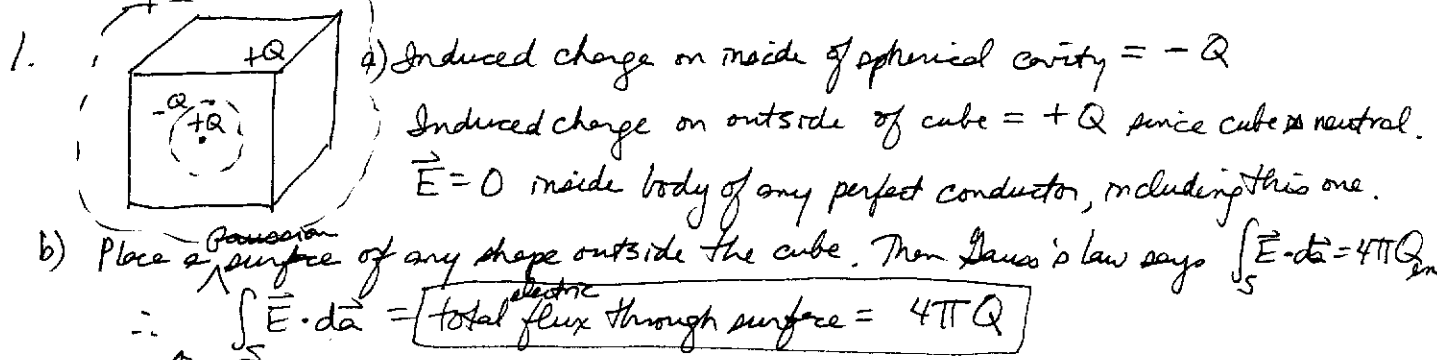 1.
+Q
a) Induced charge on inside of spherical cavity = - Q
-Q
+Q
Induced charge on outside of cube = + Q since cube is neutral.
E⃗ = 0 inside body of any perfect conductor, including this one.
b) Place a Gaussian surface of any shape outside the cube. Then Gauss's law says ∫_S E⃗ · da⃗ = 4πQ_in
∴ ∫_S E⃗ · da⃗ = total electric flux through surface = 4πQ